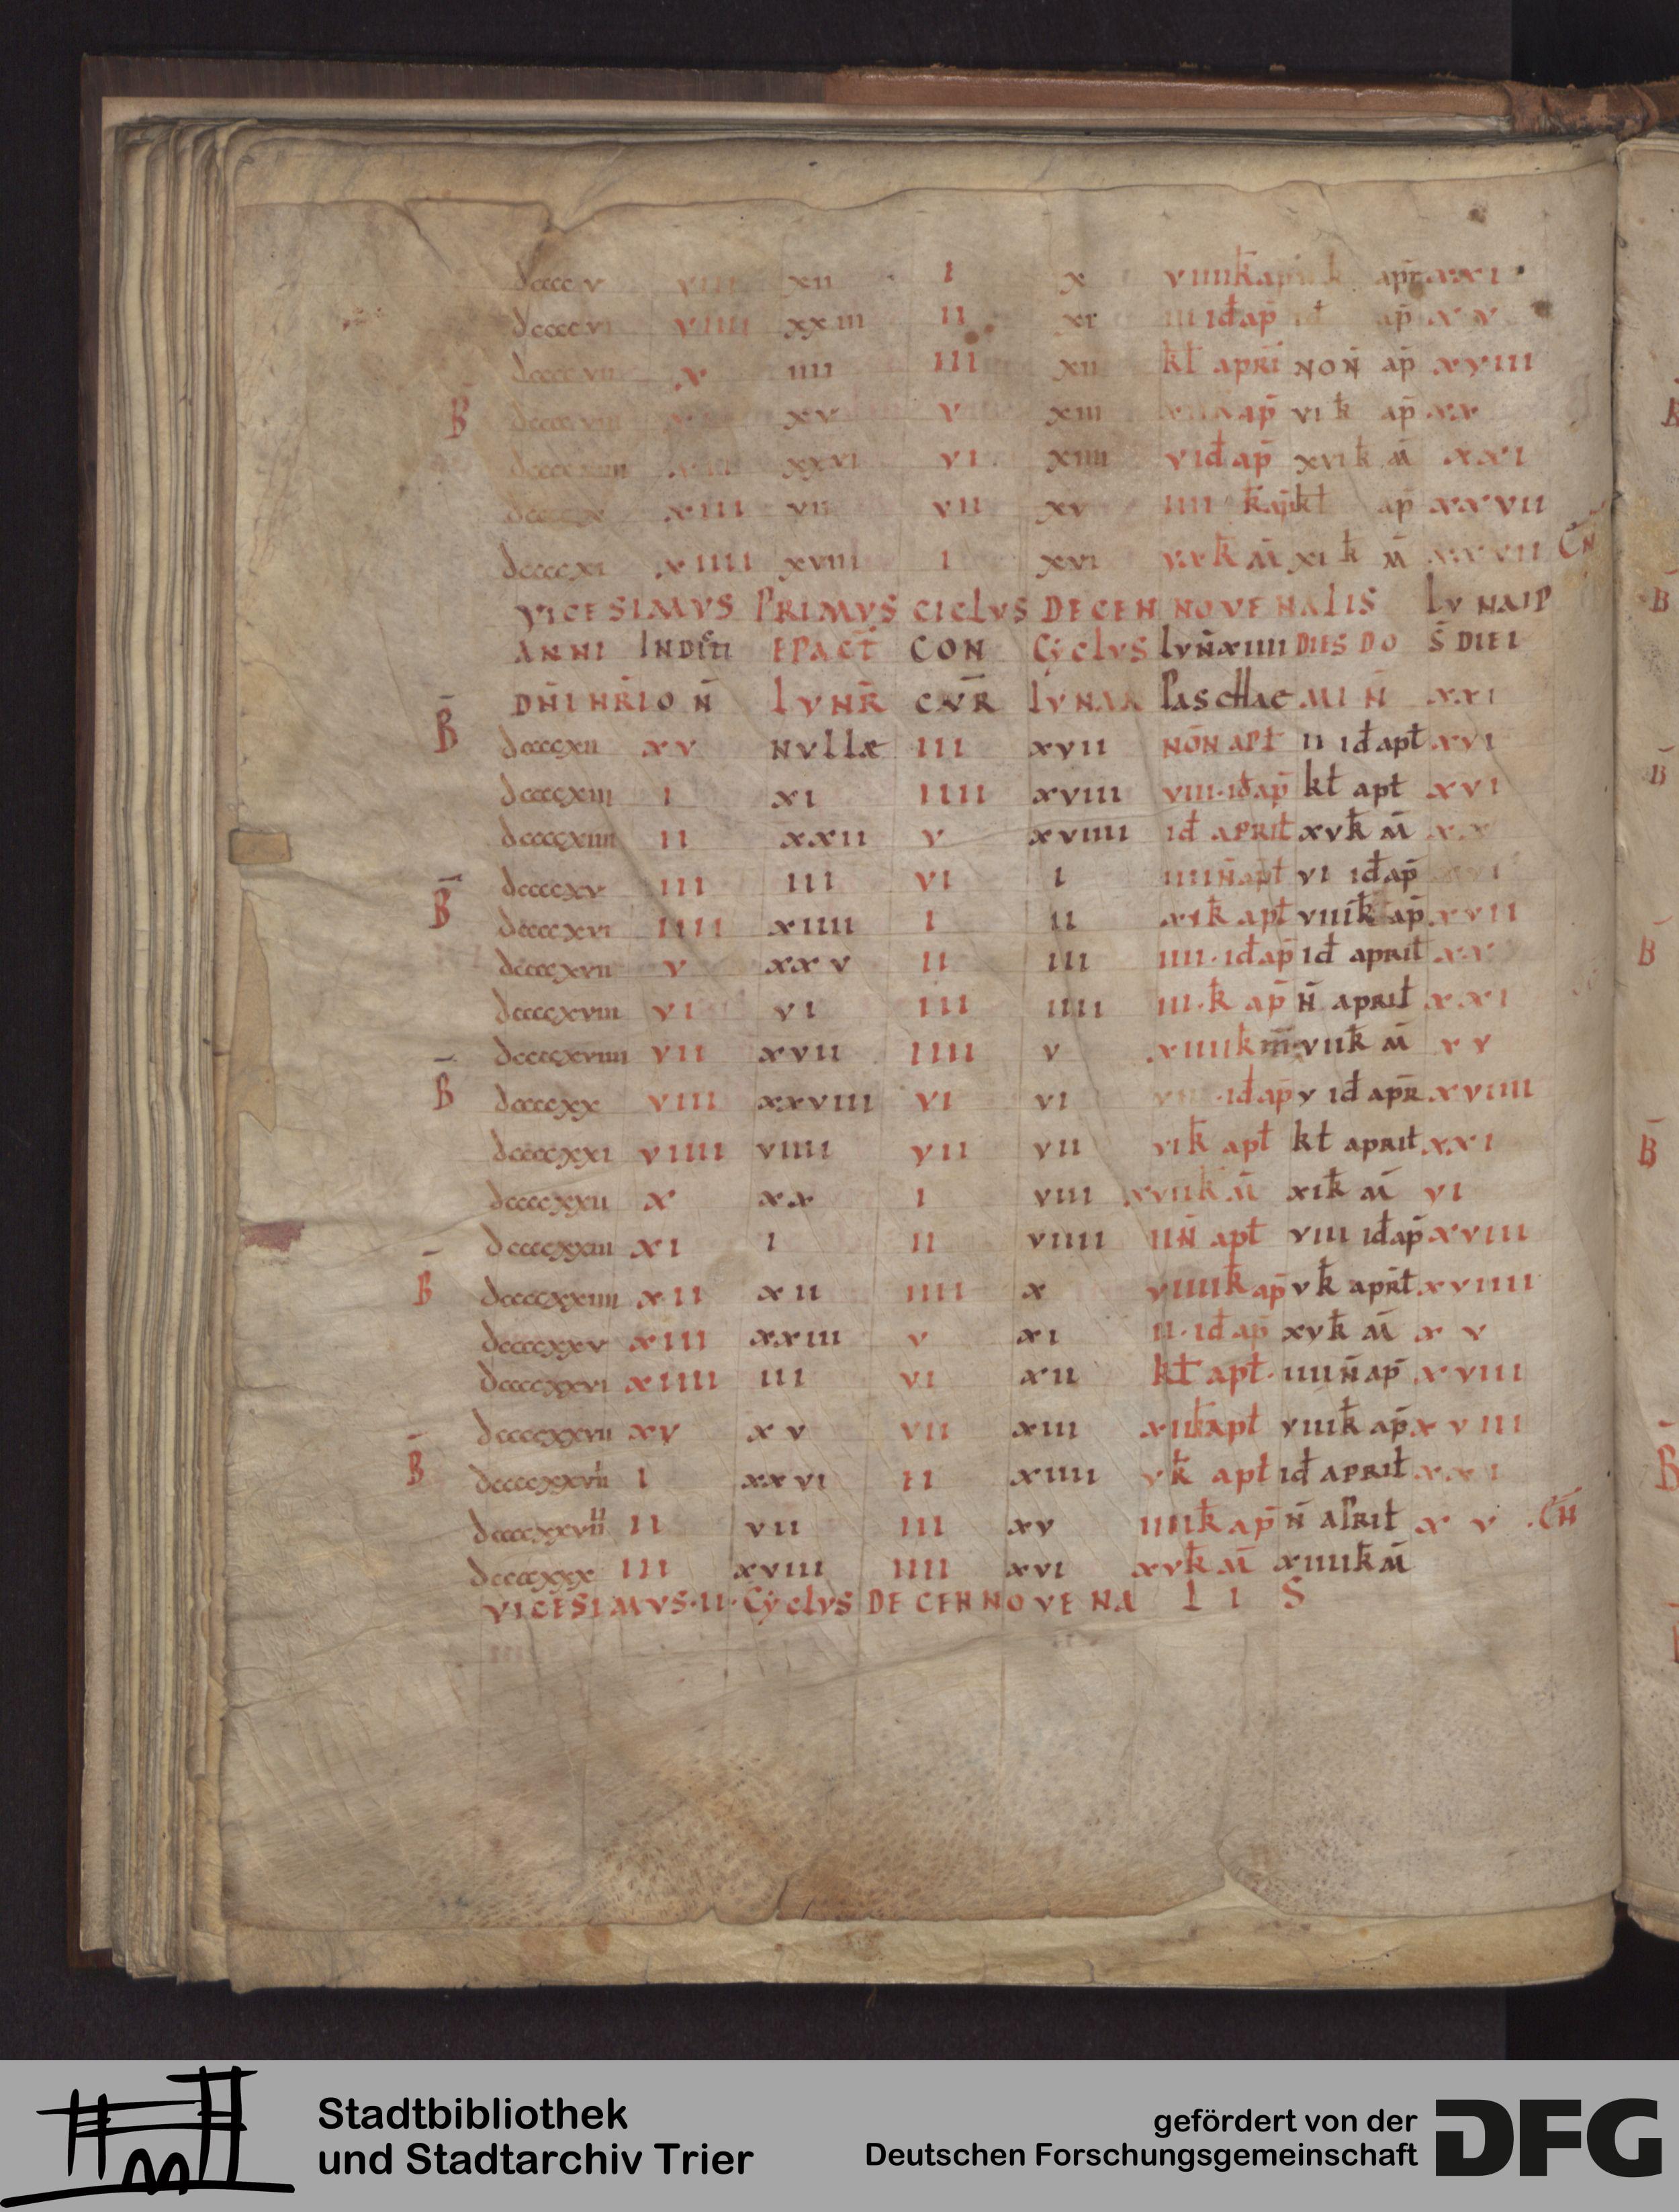 dccccv viii xii i x viiii k̄ ap k apr̄ xxi
dccccvi viiii xxiii ii xi iii id ap̄ id ap̄ xv
dccccvii x iiii iii xii kł apri non̄ ap̄ xviii
B̄ dccccviii xv v xiii ap̄ vi k ap̄ xx
xxvi vi xiiii v id ap̄ xvi k m̄ xxi
xiii vii vii xv iiii k ap̄ kł ap̄ xxvii
dccccxi xiiii xviii i xvi xv k̄ m̄ xi k̄ m̄ xxvii CN̄
VICESIMVS PRIMVS CICLVS DECENNOVENALIS LVNAIP
ANNI INDicti EPACT̄ CON CYCLVS LVN̄ xiiii DIES DO S̄ DIEI
DN̄I NR̄I O N̄ LVNR̄ CVR̄ LVNAR PASCHAE MI N̄ xxi
B̄ dccccxii xv NVLLAE iii xvii NON APŁ ii id apł xvi
dccccxiii i xi iiii xviii viii·id ap̄ kł apł xvi
dccccxiiii ii xxii v xviiii id APRIŁ xv k̄ m̄ xx
dccccxv iii iii vi i iiii n̄ apł vi id ap̄
B̄ dccccxvi iiii xiiii i ii xi k̄ apł viiii k̄ ap̄ xvii
dccccxvii v xxv ii iii iiii·id ap̄ id aprił xx
dccccxviii vi vi iii iiii iii·k̄ ap̄ n̄ aprił xxi
dccccxviiii vii xvii iiii v xiiii k m̄ vii k̄ m̄ xv
B̄ dccccxx viii xxviii vi vi vii·id ap̄ v id apr̄ xviiii
dccccxxi viiii viiii vii vii vi k̄ apł kł aprił xxi
dccccxxii x xx i viii xvii k̄ m̄ xi k̄ m̄ vi
dccccxxiii xi i ii viiii ii n̄ apł viii id ap̄ xviii
B̄ dccccxxiiii xii xii iiii x viiii k̄ ap̄ v k̄ aprł xviiii
dccccxxv xiii xxiii v xi ii·id ap̄ xv k̄ m̄ xv
dccccxxvi xiiii iii vi xii kł apł· iiii n̄ ap̄ xviii
dccccxxvii xv xv vii xiii xii k apł viii k̄ ap̄ xviii
B̄ dccccxxviii i xxvi ii xiiii v k̄ apł id aprił xxi
dccccxxviiii ii vii iii xv iiii k̄ ap̄ n̄ aprił xv .CN̄
dccccxxx iii xviii iiii xvi xv k̄ m̄ xiiii k̄ m̄
VICESIMVS·II·CYCLVS DECENNOVENALIS
Stadtbibliothek
und Stadtarchiv Trier
gefördert von der
Deutschen Forschungsgemeinschaft
DFG